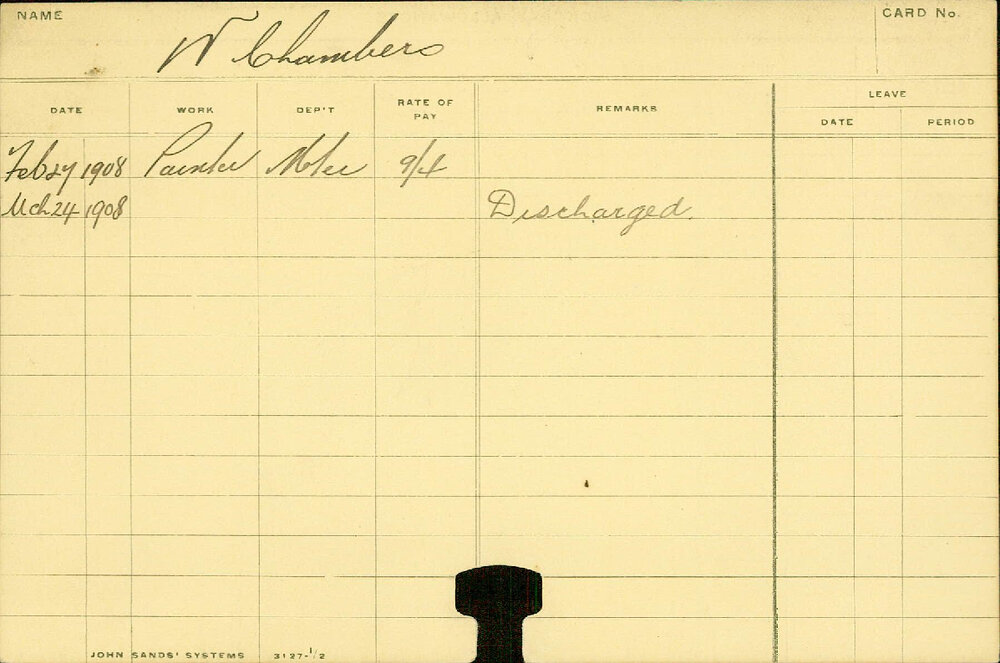 NAME
W Chambers
CARD No.
DATE WORK DEP'T RATE OF PAY REMARKS LEAVE
DATE PERIOD
Feb 27 1908 Painter 9/4
Mch 24 1908 Discharged.
JOHN SANDS' SYSTEMS 3127-1/2